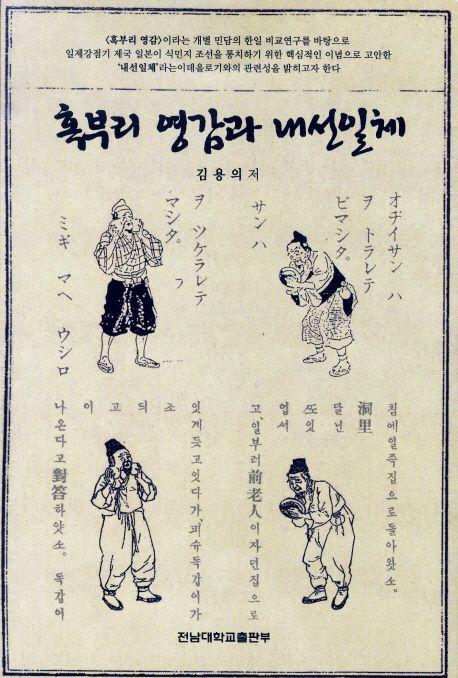 〈혹부리 영감〉이라는 개별 민담의 한일 비교연구를 바탕으로
일제강점기 제국 일본이 식민지 조선을 통치하기 위한 핵심적인 이념으로 고안한
'내선일체'라는이데올로기와의 관련성을 밝히고자 한다
혹부리 영감과 내선일체
김용의 저
オヂイサン ハ
ヲ トラレテ
ビマシタ。
サン ハ
ヲ ツケラレテ
マシタ。
フ
ミギ マヘ ウシロ
침에일즉집으로돌아왓소。
洞里
달닌
ᄯᅩ잇
업서
고、일부러前老人이자던집으로
잇게듯고잇다가、
조
듸
고
이
나온다고對答하얏소。 독갑이
전남대학교출판부